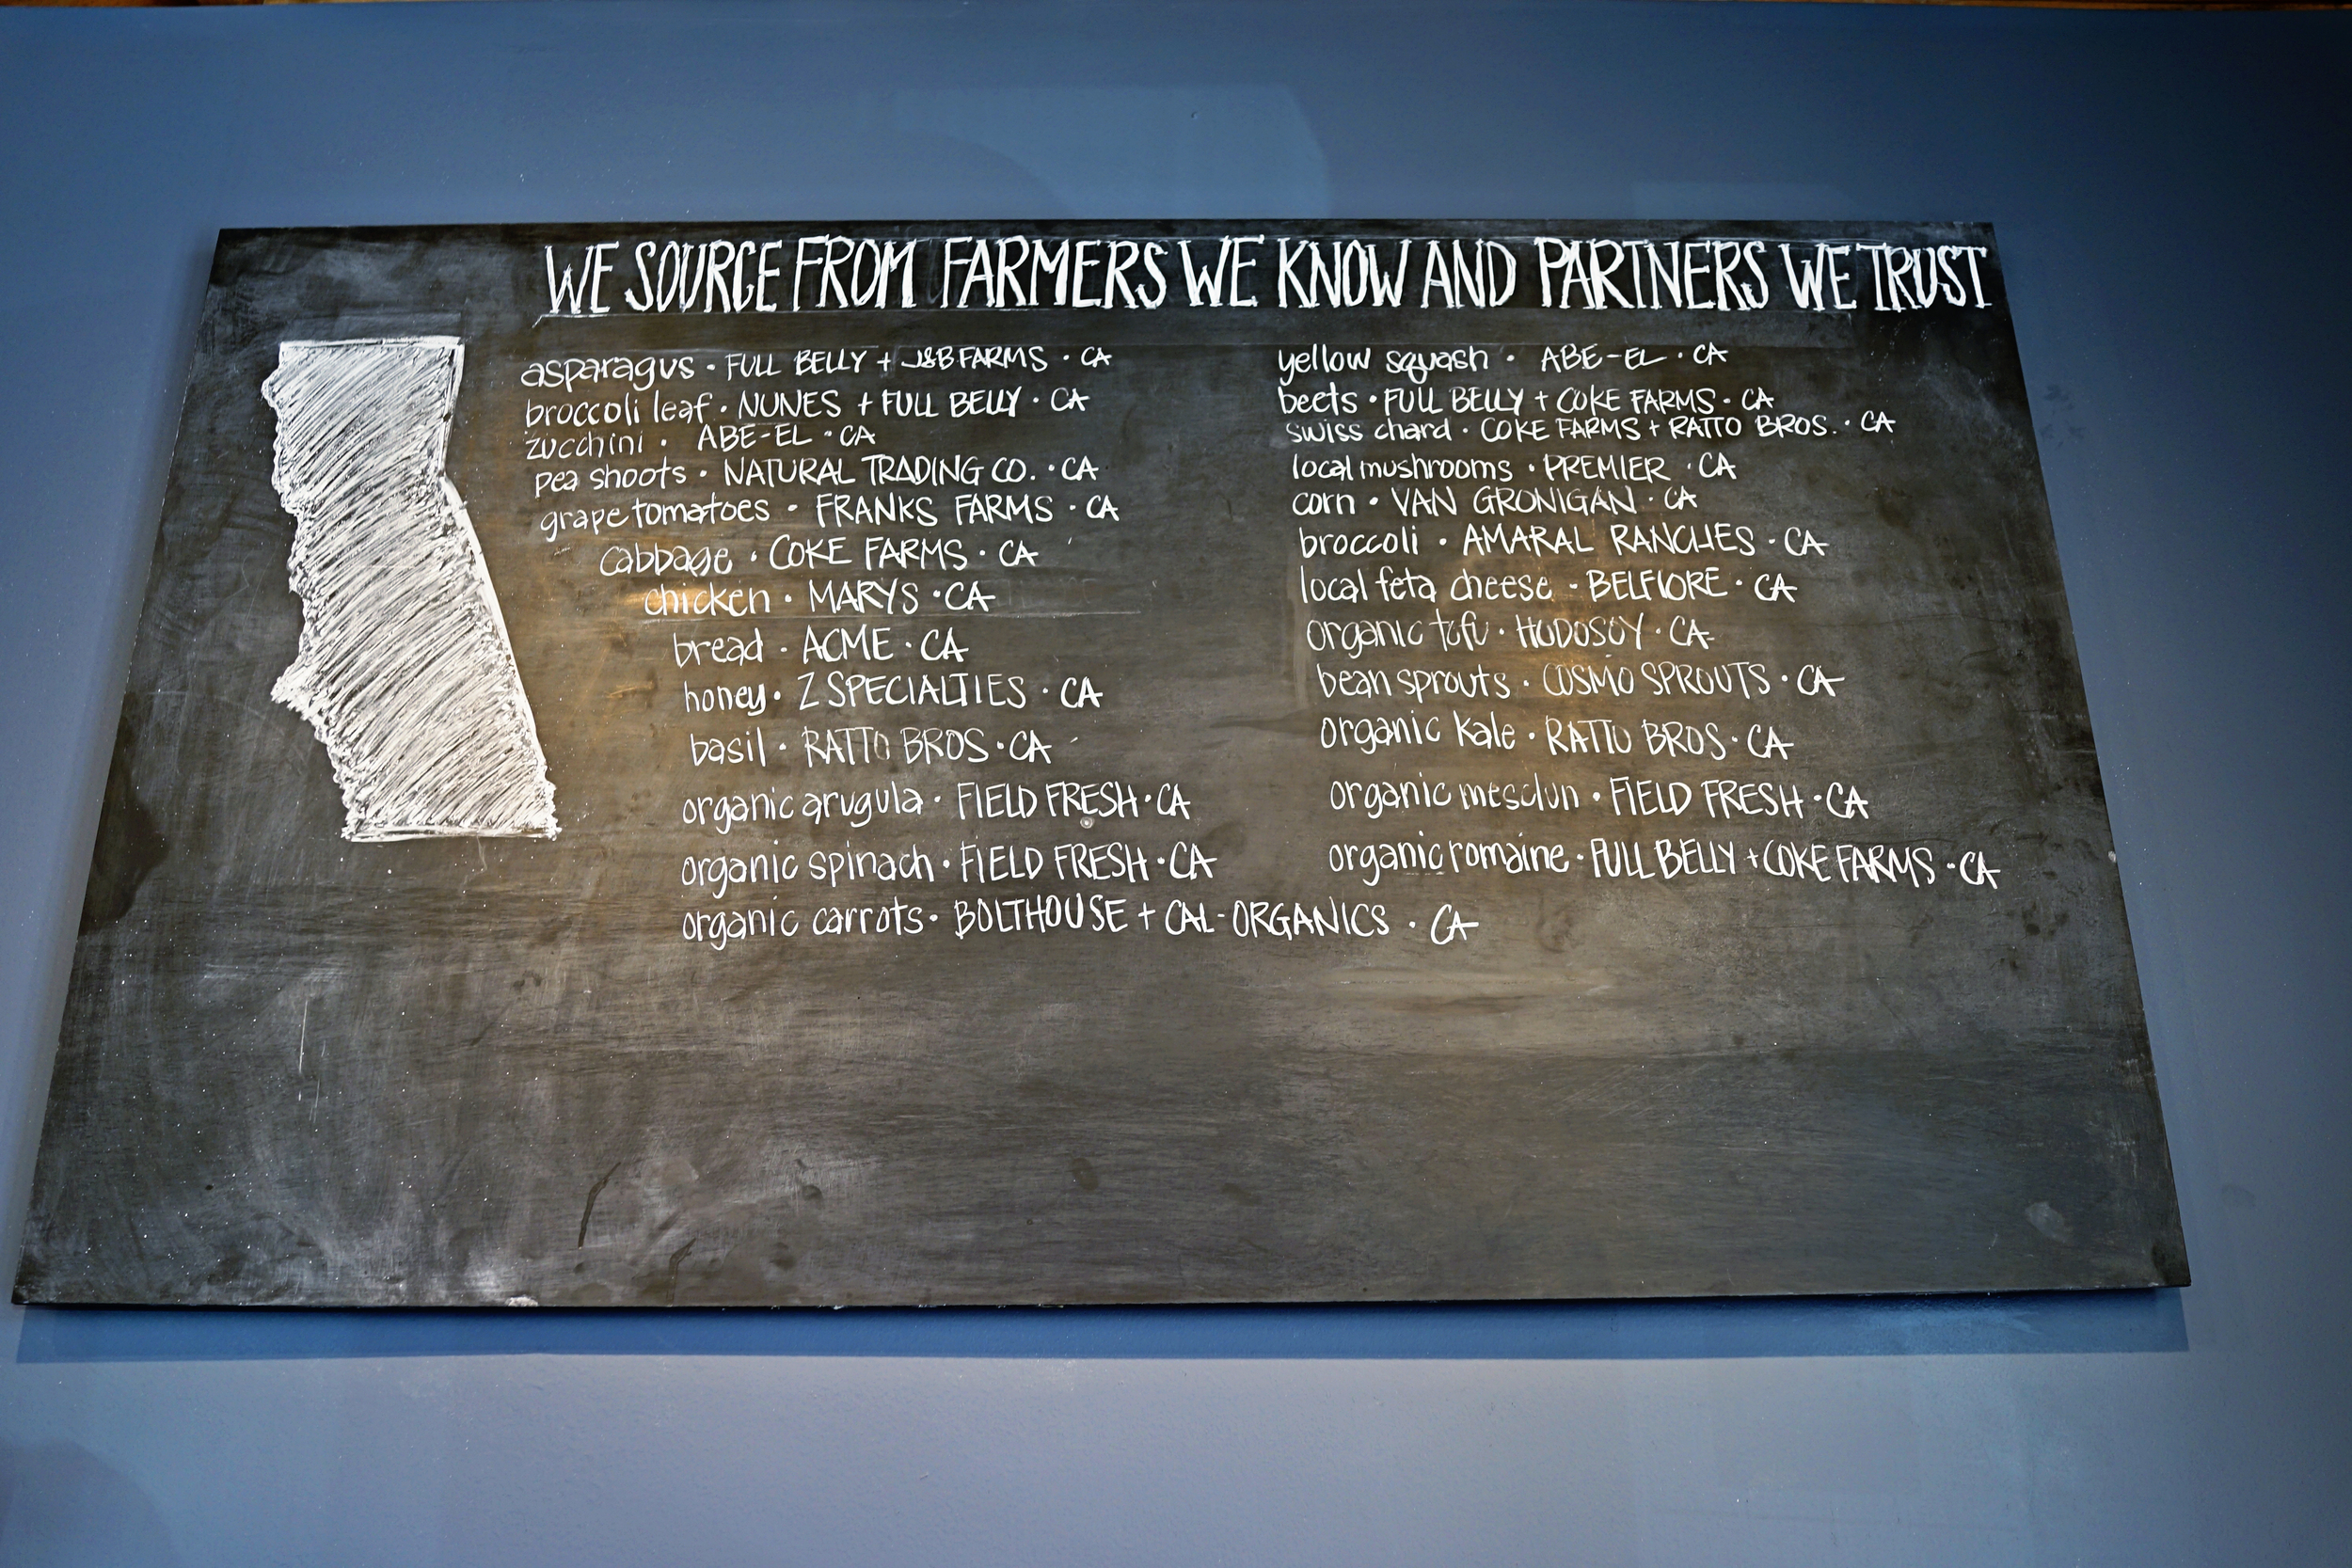 WE SOURCE FROM FARMERS WE KNOW AND PARTNERS WE TRUST
asparagus · FULL BELLY + J&B FARMS · CA
broccoli leaf · NUNES + FULL BELLY · CA
zucchini · ABE-EL · CA
pea shoots · NATURAL TRADING CO. · CA
grape tomatoes · FRANKS FARMS · CA
cabbage · COKE FARMS · CA
chicken · MARYS · CA
bread · ACME · CA
honey · Z SPECIALTIES · CA
basil · RATTO BROS · CA
organic arugula · FIELD FRESH · CA
organic spinach · FIELD FRESH · CA
organic carrots · BOLTHOUSE + CAL-ORGANICS · CA
yellow squash · ABE-EL · CA
beets · FULL BELLY + COKE FARMS · CA
swiss chard · COKE FARMS + RATTO BROS. · CA
local mushrooms · PREMIER · CA
corn · VAN GRONIGAN · CA
broccoli · AMARAL RANCHES · CA
local feta cheese - BELFIORE · CA
organic tofu · HODOSOY · CA
bean sprouts · COSMO SPROUTS · CA
organic kale · RATTO BROS · CA
organic mesclun · FIELD FRESH · CA
organic romaine · FULL BELLY + COKE FARMS · CA